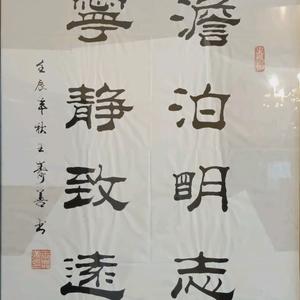 澹泊明志
寧静致遠
壬辰年秋王寿善书